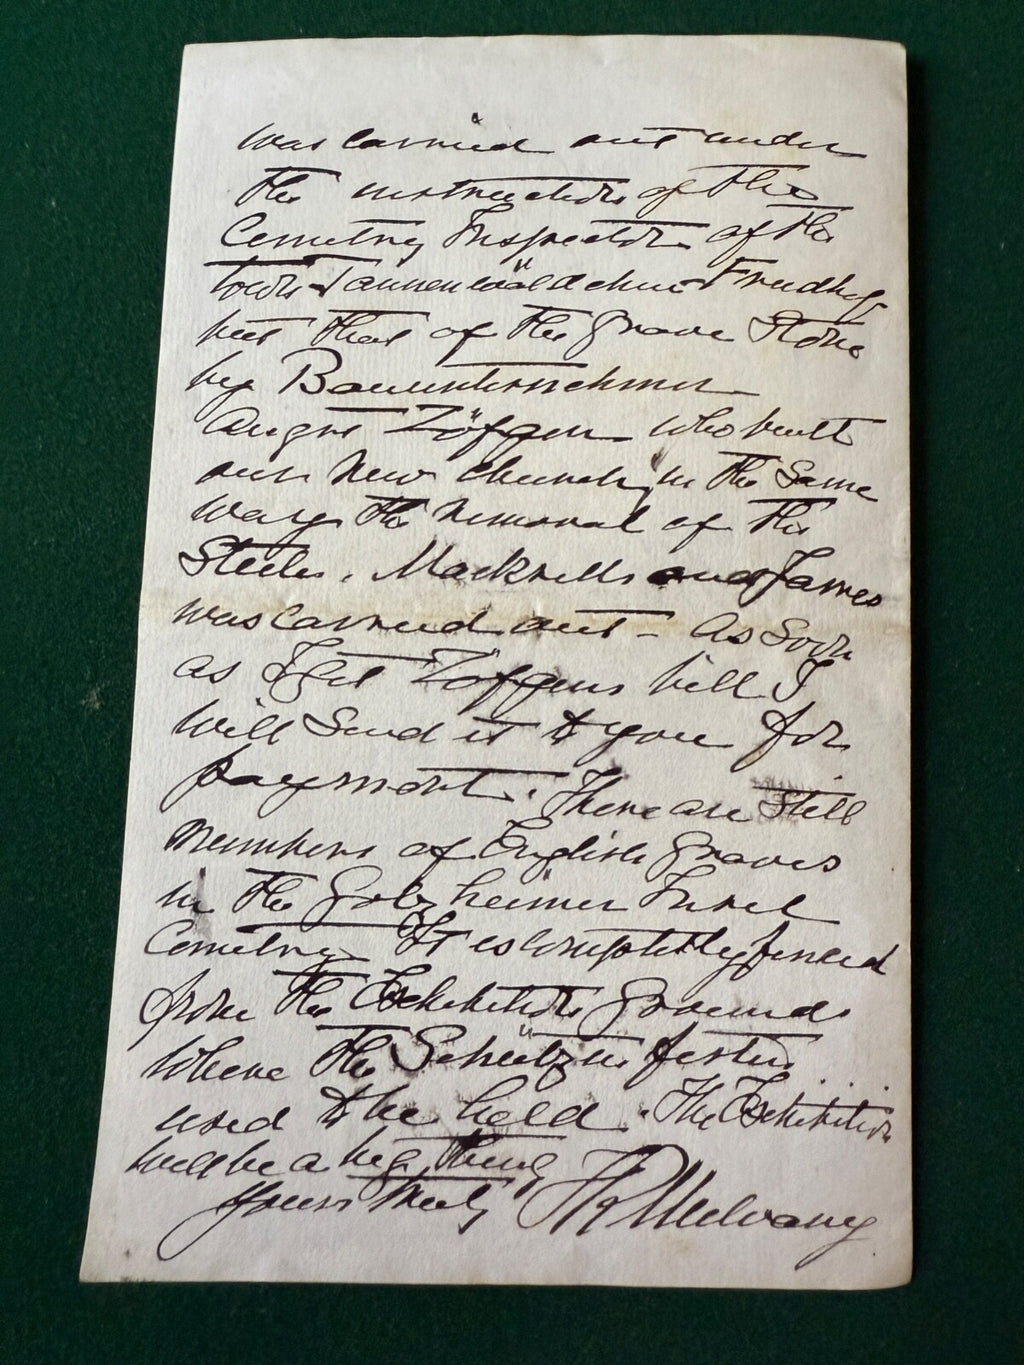 was carried out under
the instructions of the
Cemetry Inspector of the
town Tannenwäldchen Friedhof
but that of the Grave Stone
by Bauunternehmer
August Zöfgen who built
our New Church, in the same
way the removal of the
Steels, Mackrells and James
was carried out - As soon
as I get Zöfgens bill I
will send it to you for
payment. There are still
numbers of English Graves
in the Golzheimer Insel
Cemetry It is completely fenced
from the Exhibition Grounds
where the Schützen festen
used to be held. The Exhibition
will be a big thing
Yours truly TR Mulvany